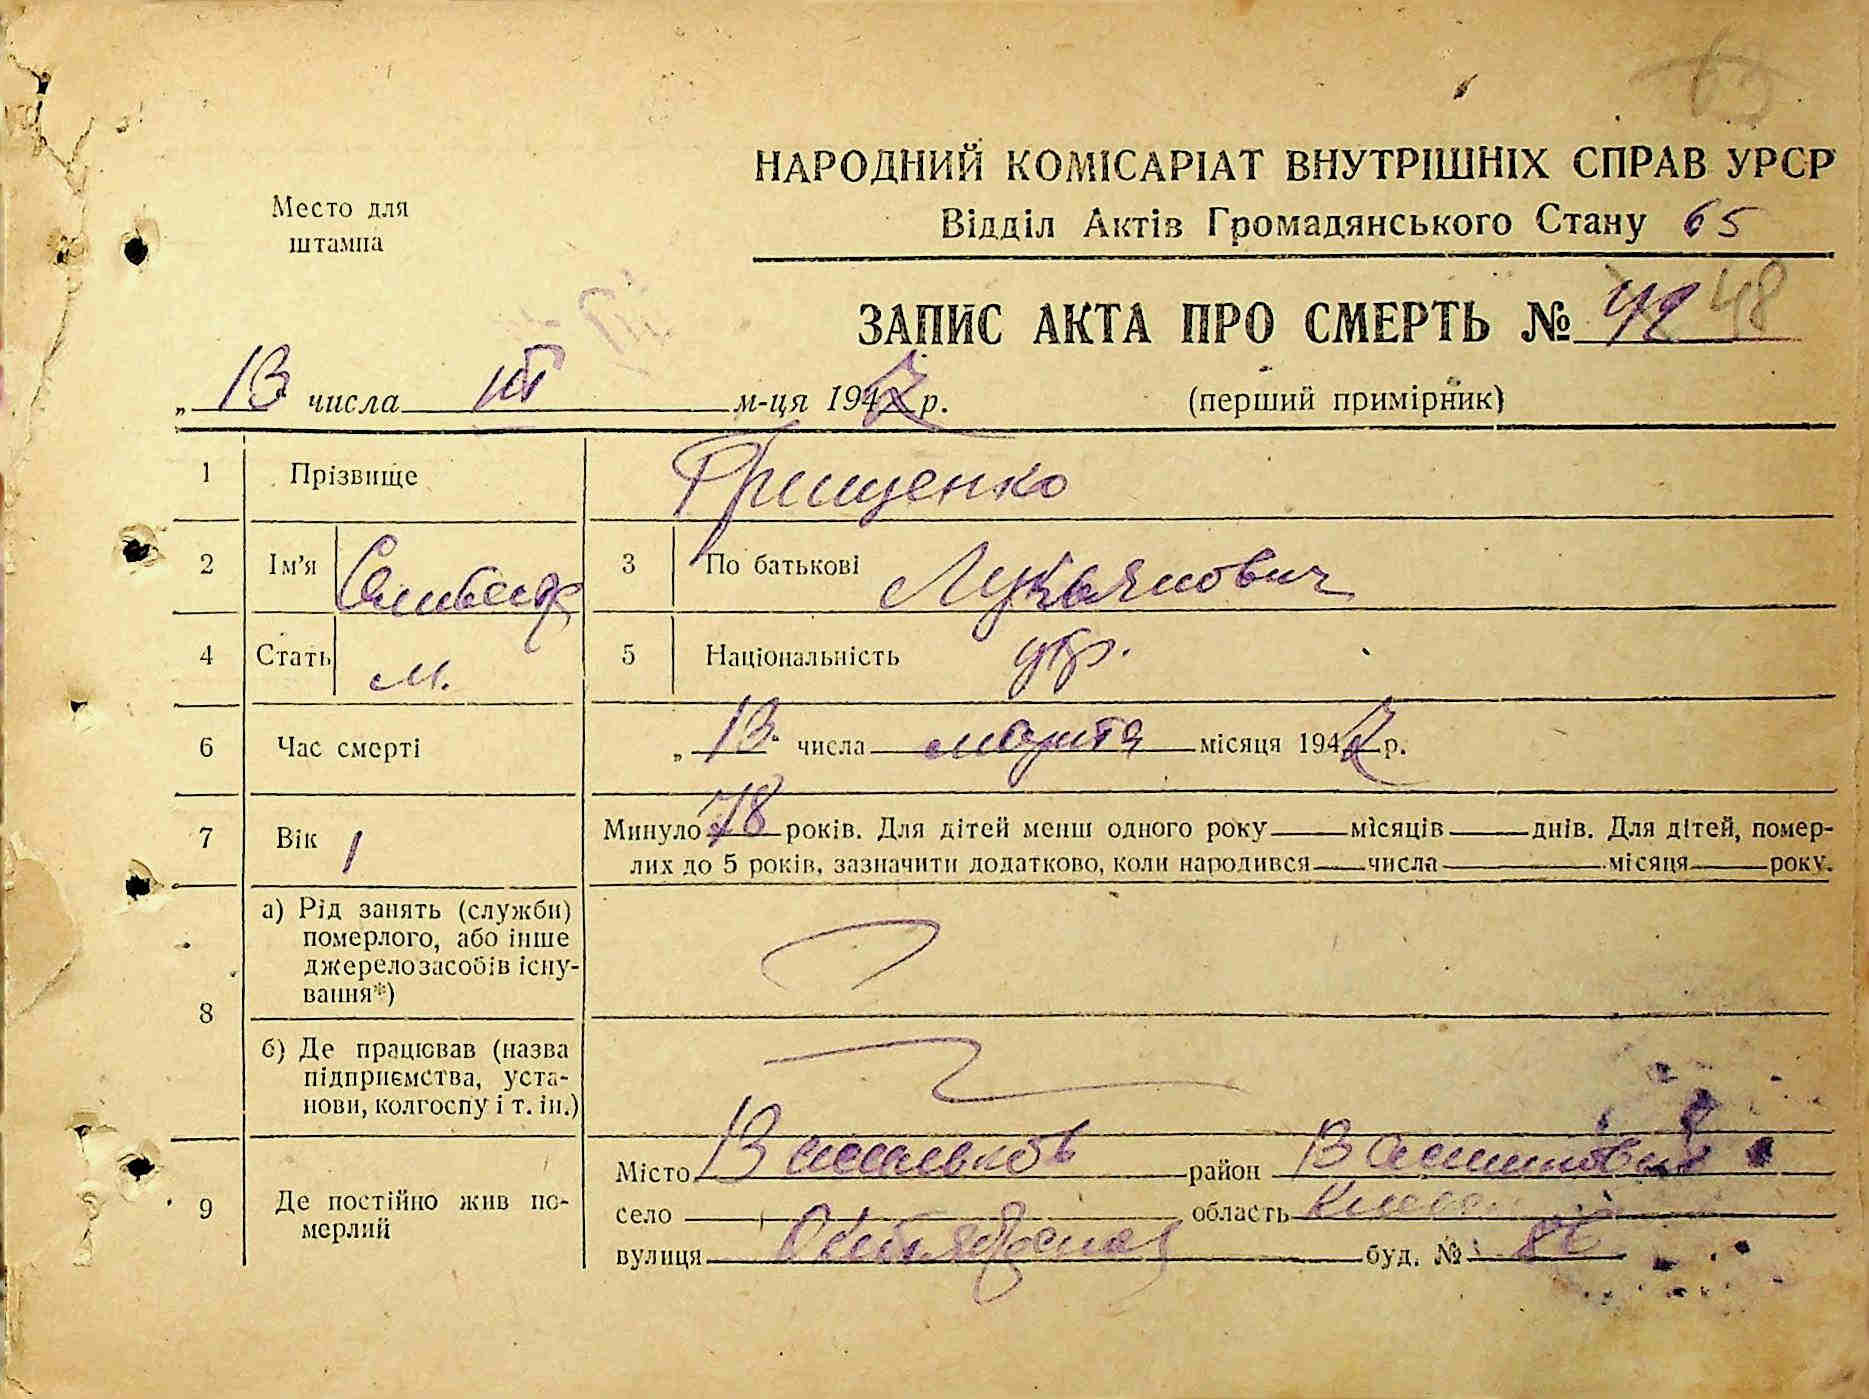 НАРОДНИЙ КОМІСАРІАТ ВНУТРІШНІХ СПРАВ УРСР
Место для
штампа
Відділ Актів Громадянського Стану 65
ЗАПИС АКТА ПРО СМЕРТЬ № 48
„ 13 числа III м-ця 1947 р. (перший примірник)
1 Прізвище Грищенко
2 Ім’я 3 По батькові Лукьянович
4 Стать м. 5 Національність укр.
6 Час смерті „ 13 числа марта місяця 1947 р.
7 Вік Минуло 78 років. Для дітей менш одного року місяців днів. Для дітей, помер-
лих до 5 років, зазначити додатково, коли народився числа місяця року.
8 а) Рід занять (служби)
померлого, або інше
джерело засобів існу-
вання*)
б) Де працював (назва
підприємства, уста-
нови, колгоспу і т. ін.)
9 Де постійно жив по-
мерлий
Місто Васильков район
село область
вулиця Октябрьская буд. №